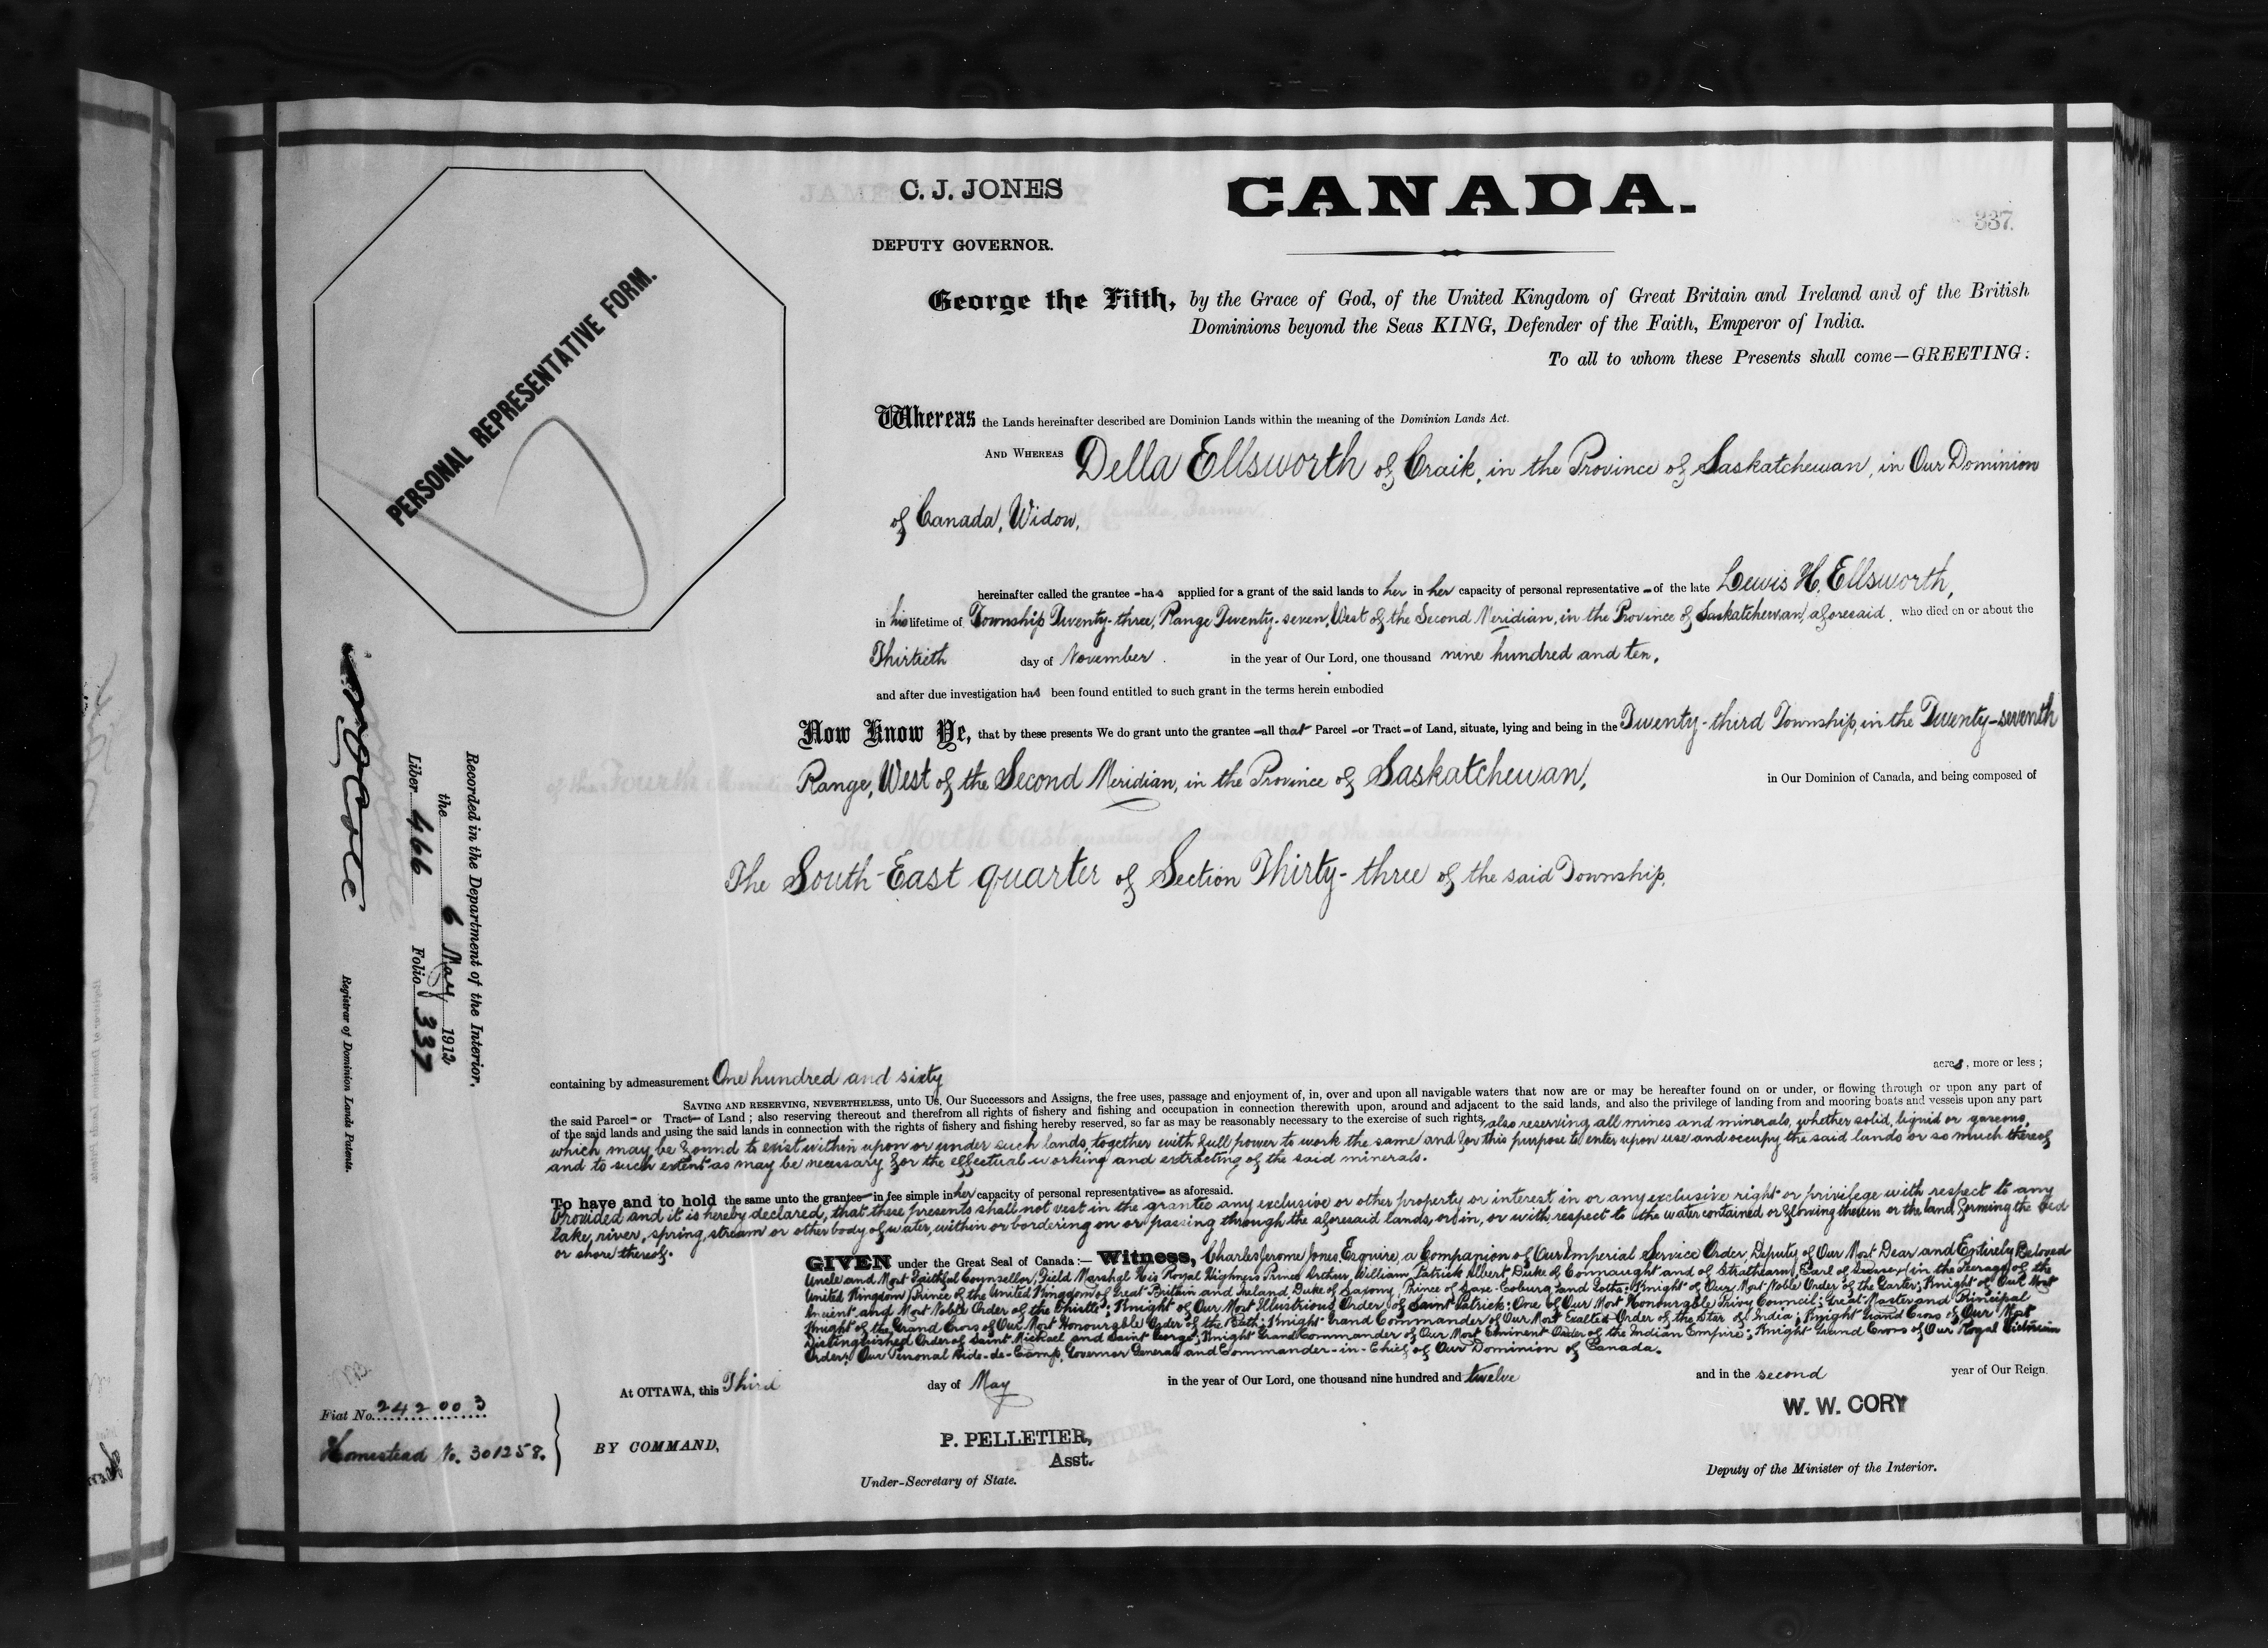 C. J. JONES
CANADA.
337.
DEPUTY GOVERNOR.
PERSONAL REPRESENTATIVE FORM.
George the Fifth, by the Grace of God, of the United Kingdom of Great Britain and Ireland and of the British
Dominions beyond the Seas KING, Defender of the Faith, Emperor of India.
To all to whom these Presents shall come—GREETING:
Whereas the Lands hereinafter described are Dominion Lands within the meaning of the Dominion Lands Act.
AND WHEREAS Della Ellsworth of Craik, in the Province of Saskatchewan, in Our Dominion
of Canada, Widow,
hereinafter called the grantee - has applied for a grant of the said lands to her in her capacity of personal representative - of the late Lewis H. Ellsworth,
in his lifetime of Township Twenty-three, Range Twenty-seven, West of the Second Meridian, in the Province of Saskatchewan, aforesaid, who died on or about the
Thirtieth day of November in the year of Our Lord, one thousand nine hundred and ten,
and after due investigation has been found entitled to such grant in the terms herein embodied
Now Know Ye, that by these presents We do grant unto the grantee - all that Parcel - or Tract - of Land, situate, lying and being in the Twenty-third Township, in the Twenty-seventh
Range, West of the Second Meridian, in the Province of Saskatchewan, in Our Dominion of Canada, and being composed of
The South-East quarter of Section Thirty-three of the said Township.
Recorded in the Department of the Interior.
the 6 May 1912
Liber 466 Folio 337
Registrar of Dominion Lands Patents.
containing by admeasurement One hundred and sixty acres, more or less;
SAVING AND RESERVING, NEVERTHELESS, unto Us, Our Successors and Assigns, the free uses, passage and enjoyment of, in, over and upon all navigable waters that now are or may be hereafter found on or under, or flowing through or upon any part of
the said Parcel - or Tract - of Land; also reserving thereout and therefrom all rights of fishery and fishing and occupation in connection therewith upon, around and adjacent to the said lands, and also the privilege of landing from and mooring boats and vessels upon any part
of the said lands and using the said lands in connection with the rights of fishery and fishing hereby reserved, so far as may be reasonably necessary to the exercise of such rights, also reserving all mines and minerals, whether solid, liquid or gaseous,
which may be found to exist within upon or under such lands, together with full power to work the same and for this purpose to enter upon use and occupy the said lands or so much thereof
and to such extent as may be necessary for the effectual working and extracting of the said minerals.
To have and to hold the same unto the grantee - in fee simple in her capacity of personal representative - as aforesaid.
Provided and it is hereby declared, that these presents shall not vest in the grantee any exclusive or other property or interest in or any exclusive right or privilege with respect to any
lake, river, spring, stream or other body of water, within or bordering on or passing through the aforesaid lands, or in, or with respect to the water contained or flowing therein or the land forming the bed
or shore thereof.
GIVEN under the Great Seal of Canada:— Witness, Charles Jerome Jones, Esquire, a Companion of Our Imperial Service Order, Deputy of Our Most Dear and Entirely Beloved
Uncle and Most Faithful Counsellor, Field Marshal His Royal Highness Prince Arthur William Patrick Albert Duke of Connaught and of Strathearn, Earl of Sussex (in the Peerage of the
United Kingdom) Prince of the United Kingdom of Great Britain and Ireland, Duke of Saxony, Prince of Saxe-Coburg and Gotha; Knight of Our Most Noble Order of the Garter; Knight of Our Most
Ancient and Most Noble Order of the Thistle; Knight of Our Most Illustrious Order of Saint Patrick; One of Our Most Honourable Privy Council; Great Master and Principal
Knight of the Grand Cross of Our Most Honourable Order of the Bath; Knight Grand Commander of Our Most Exalted Order of the Star of India; Knight Grand Cross of Our Most
Distinguished Order of Saint Michael and Saint George; Knight Grand Commander of Our Most Eminent Order of the Indian Empire; Knight Grand Cross of Our Royal Victorian
Order; Our Personal Aide-de-Camp, Governor General and Commander-in-Chief of Our Dominion of Canada.
At OTTAWA, this Third day of May in the year of Our Lord, one thousand nine hundred and twelve and in the second year of Our Reign
Fiat No. 242003
Homestead No. 301258.
BY COMMAND,
P. PELLETIER,
Asst.
Under-Secretary of State.
W. W. CORY
Deputy of the Minister of the Interior.